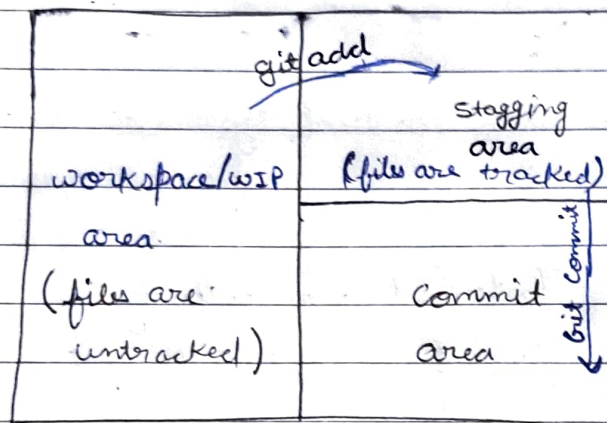 git add
stagging
area
(files are tracked)
workspace/WIP
area
(files are
untracked)
Commit
area
Git Commit